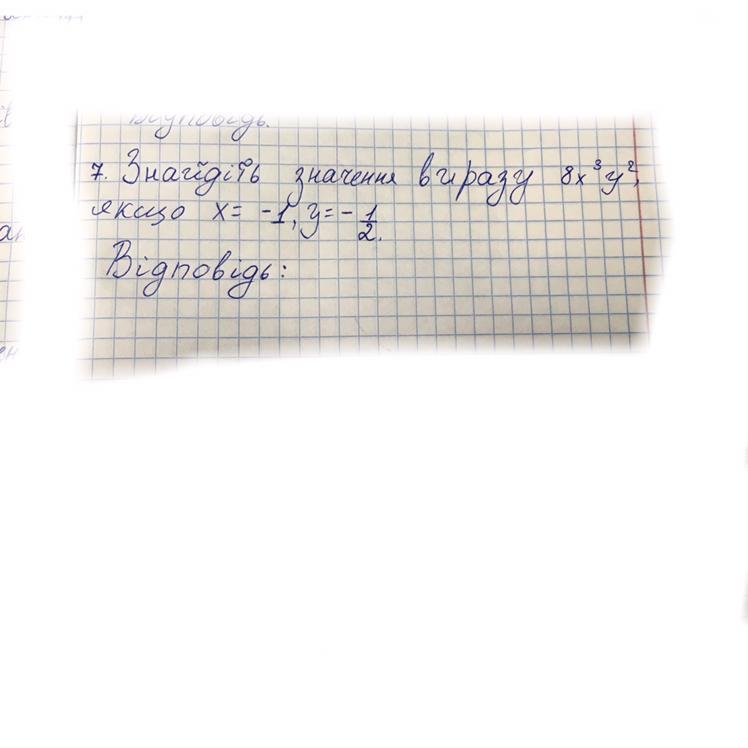 Відповідь.
7. Знайдіть значення виразу 8x³y²,
якщо x = -1, y = -1/2.
Відповідь: